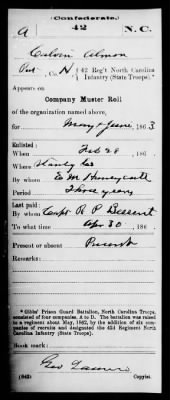 (Confederate.)
A 42 N.C.
Calvin Almon
Pvt, Co. H, 42 Reg't North Carolina
Infantry (State Troops).*
Appears on
Company Muster Roll
of the organization named above,
for May & June, 1863
Enlisted:
When Feb 28, 186
Where Stanly Co
By whom E. M. Honeycutt
Period Three years
Last paid:
By whom Capt R P Bessent
To what time Apr 30, 186
Present or absent Present
Remarks:
* Gibbs' Prison Guard Battalion, North Carolina Troops,
consisted of four companies, A to D. The battalion was raised
to a regiment about May, 1862, by the addition of six com-
panies of recruits and designated the 42d Regiment North
Carolina Infantry (State Troops).
Book mark:
(642) Geo Copyist.